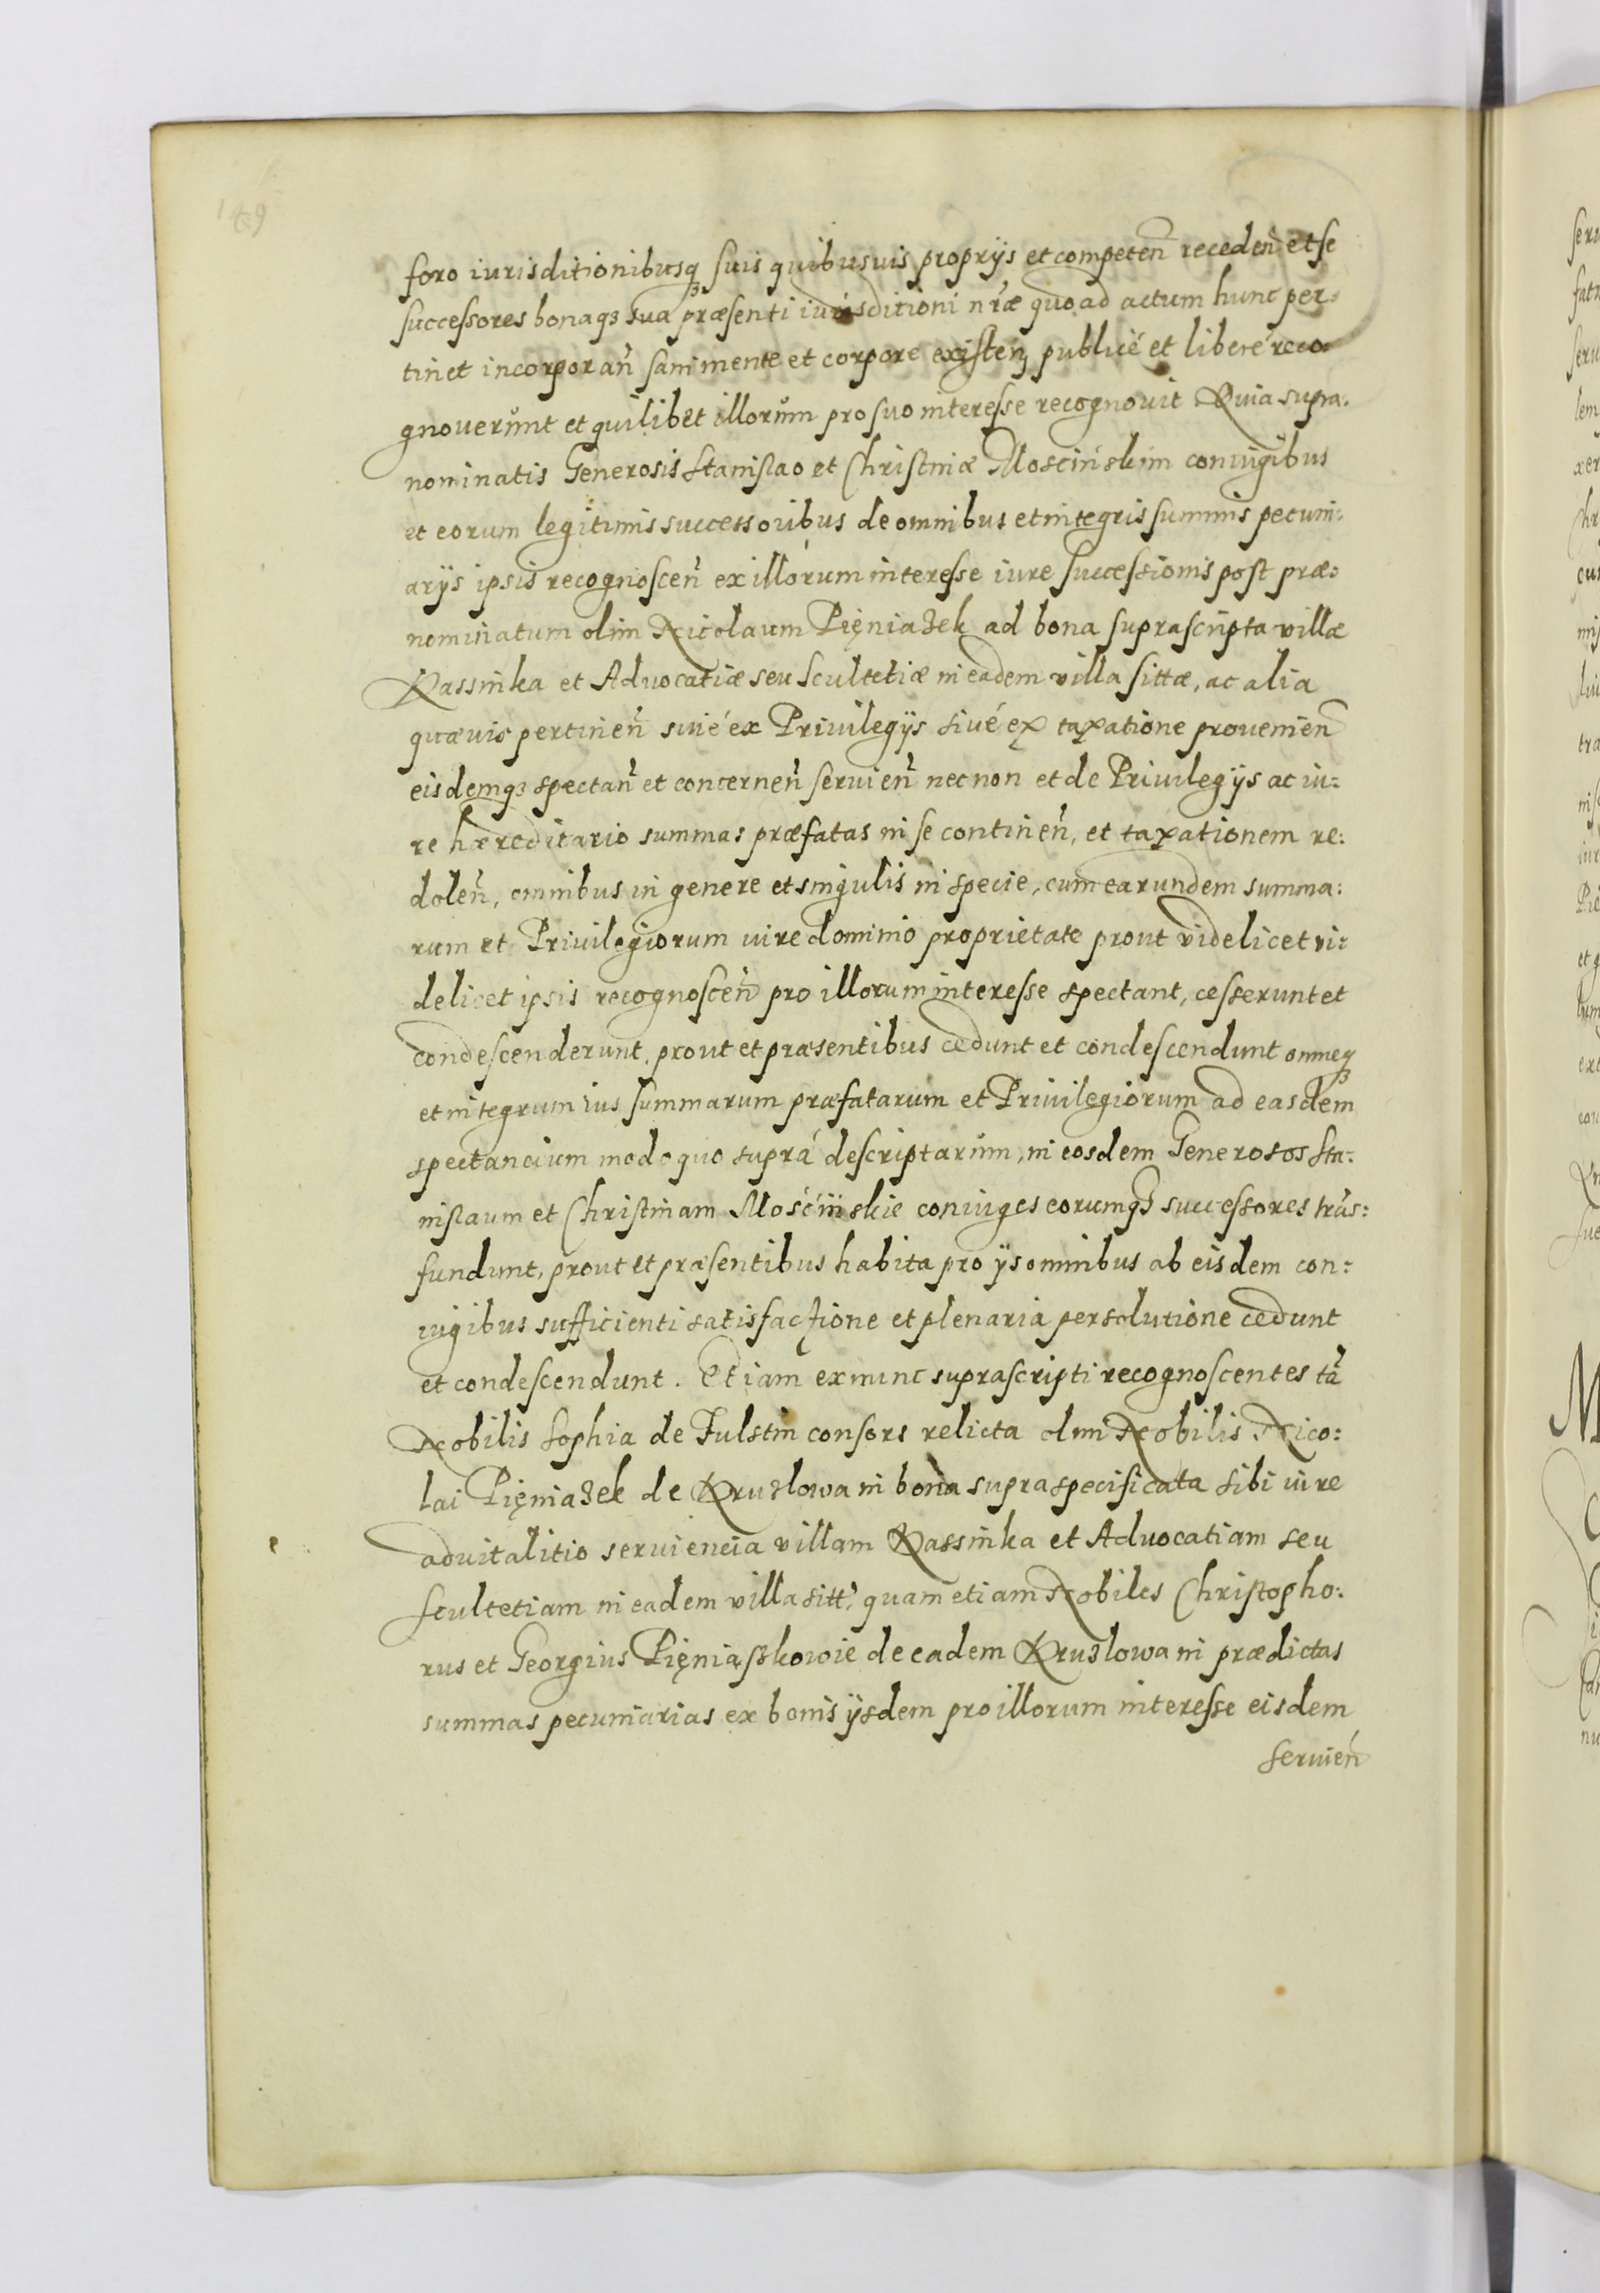 foro iurisditionibusq₃ suis quibusuis proprijs et competeñ recedeñ et se
successores bonaq₃ sua præsenti iurisditioni nr̃æ quoad actum hunc per:
tinet incorporañ sani mente et corpore existeñ publicé et liberé reco:
gnouerunt et quilibet illorum pro suo interesse recognouit Quia supra:
nominatis Generosis Stanislao et Christinæ Moscińskim coniugibus
et eorum legitimis successoribus de omnibus et integris summis pecuni:
arijs ipsis recognosceñ ex illorum interesse iure successionis post præ:
nominatum olim Nicolaum Pięniazek ad bona suprascripta villæ
Kassinka et Aduocatiæ seu Scultetiæ in eadem villa sittæ, ac alia
quæuis pertineñ siué ex Priuilegijs siué ex taxatione prouenieñ
eisdemq₃ spectañ et concerneñ seruieñ necnon et de Priuilegijs ac iu:
re hæreditario summas præfatas in se contineñ, et taxationem re:
doleñ, omnibus in genere et singulis in specie, cum earundem summa:
rum et Priuilegiorum iure dominio proprietate prout videlicet vi:
delicet ipsis recognosceñ pro illorum interesse spectant, cesserunt et
condescenderunt, prout et præsentibus cedunt et condescendunt omneq₃
et integrum ius summarum præfatarum et Priuilegiorum ad easdem
spectancium modo quo suprá descriptarum, in eosdem Generosos Sta:
nislaum et Christinam Mośćińskie coniuges eorumq₃ successores trãs:
fundunt, prout et præsentibus habita pro ijs omnibus ab eisdem con:
iugibus sufficienti satisfactione et plenaria persolutione cedunt
et condescendunt. Et iam ex nunc suprascripti recognoscentes tã
Nobilis Sophia de Fulstin consors relicta olim Nobilis Nico:
lai Pięniazek de Kruzlowa in bona supraspecificata sibi iure
aduitalitio seruiencia villam Kassinka et Aduocatiam seu
scultetiam in eadem villa sitt̃, quam etiam Nobiles Christopho:
rus et Georgius Pięniąszkowie de eadem Kruzlowa in prædictas
summas pecuniarias ex bonis ijsdem pro illorum interesse eisdem
seruieñ